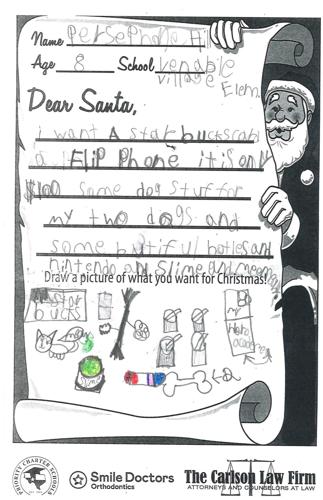 Name Persephone H
Age 8 School venable
village
Elem.
Dear Santa,
i want A star buckscab
a Flip Phone it is only
$100 some dog stuf for
my two dogs and
some butiful botles and
nintendo and Slime and
Draw a picture of what you want for Christmas!
star
bucks
PRIORITY CHARTER SCHOOLS
Smile Doctors
Orthodontics
The Carlson Law Firm
ATTORNEYS AND COUNSELORS AT LAW